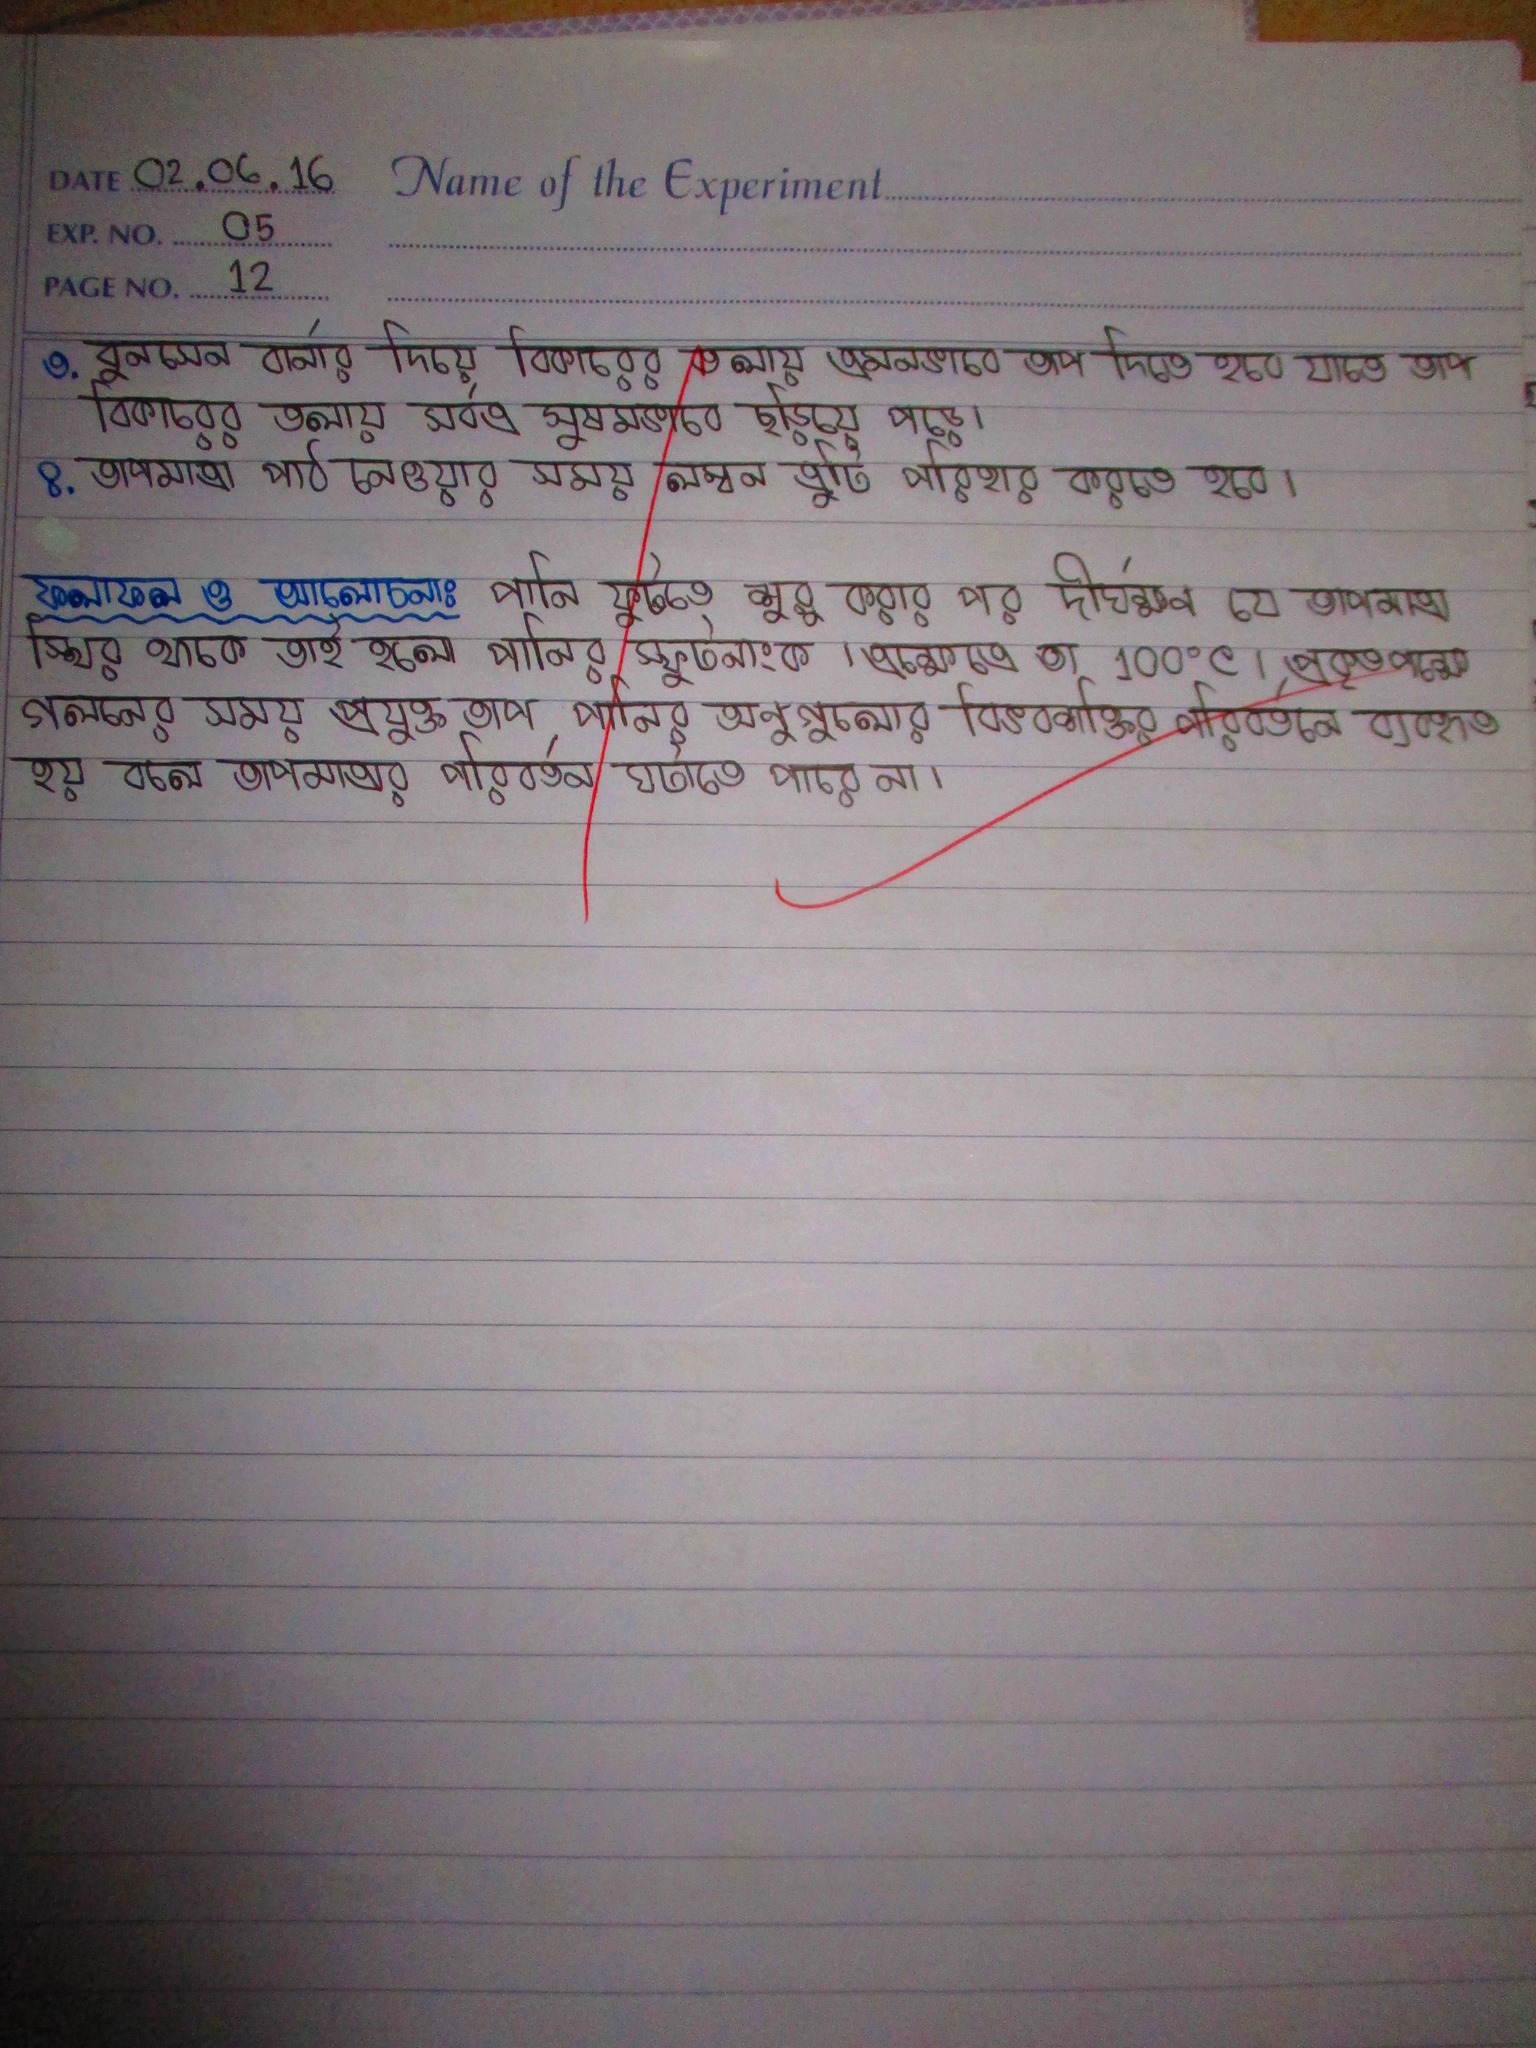 DATE 02.06.16 Name of the Experiment
EXP. NO. 05
PAGE NO. 12
৩. বুনসেন বার্নার দিয়ে বিকারের তলায় এমনভাবে তাপ দিতে হবে যাতে তাপ
বিকারের তলায় সর্বত্র সুষমভাবে ছড়িয়ে পড়ে।
৪. তাপমাত্রা পাঠ নেওয়ার সময় লম্বন ত্রুটি পরিহার করতে হবে।
ফলাফল ও আলোচনাঃ পানি ফুটতে শুরু করার পর দীর্ঘক্ষন যে তাপমাত্রা
স্থির থাকে তাই হলো পানির স্ফুটনাংক। এক্ষেত্রে তা 100°C। প্রকৃতপক্ষে
গলনের সময় প্রযুক্ত তাপ পানির অনুগুলোর বিভবশক্তির পরিবর্তনে ব্যবহৃত
হয় বলে তাপমাত্রার পরিবর্তন ঘটাতে পারে না।